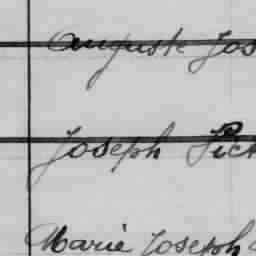 Auguste Jos
Joseph Pick
Marie Joseph